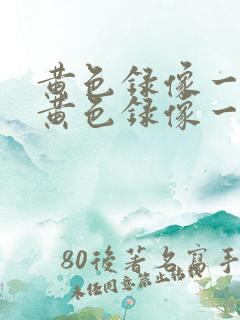 黄色録像一
黄色録像一
80後著名寫手
未任同意禁止轉載